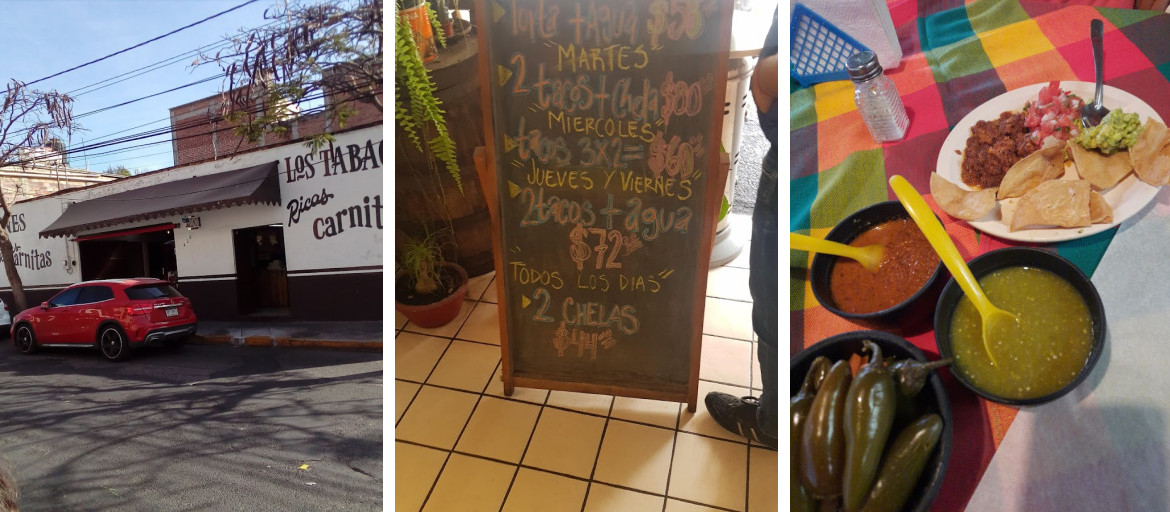 LOS TABA
Ricas
carnit
NES
arnitas
Torta + Agua $58
"MARTES"
2 tacos + Chela $80
"MIERCOLES"
tacos 3X2= $60
"JUEVES Y VIERNES"
2 tacos + agua
$72
"TODOS LOS DIAS"
2 CHELAS
$44